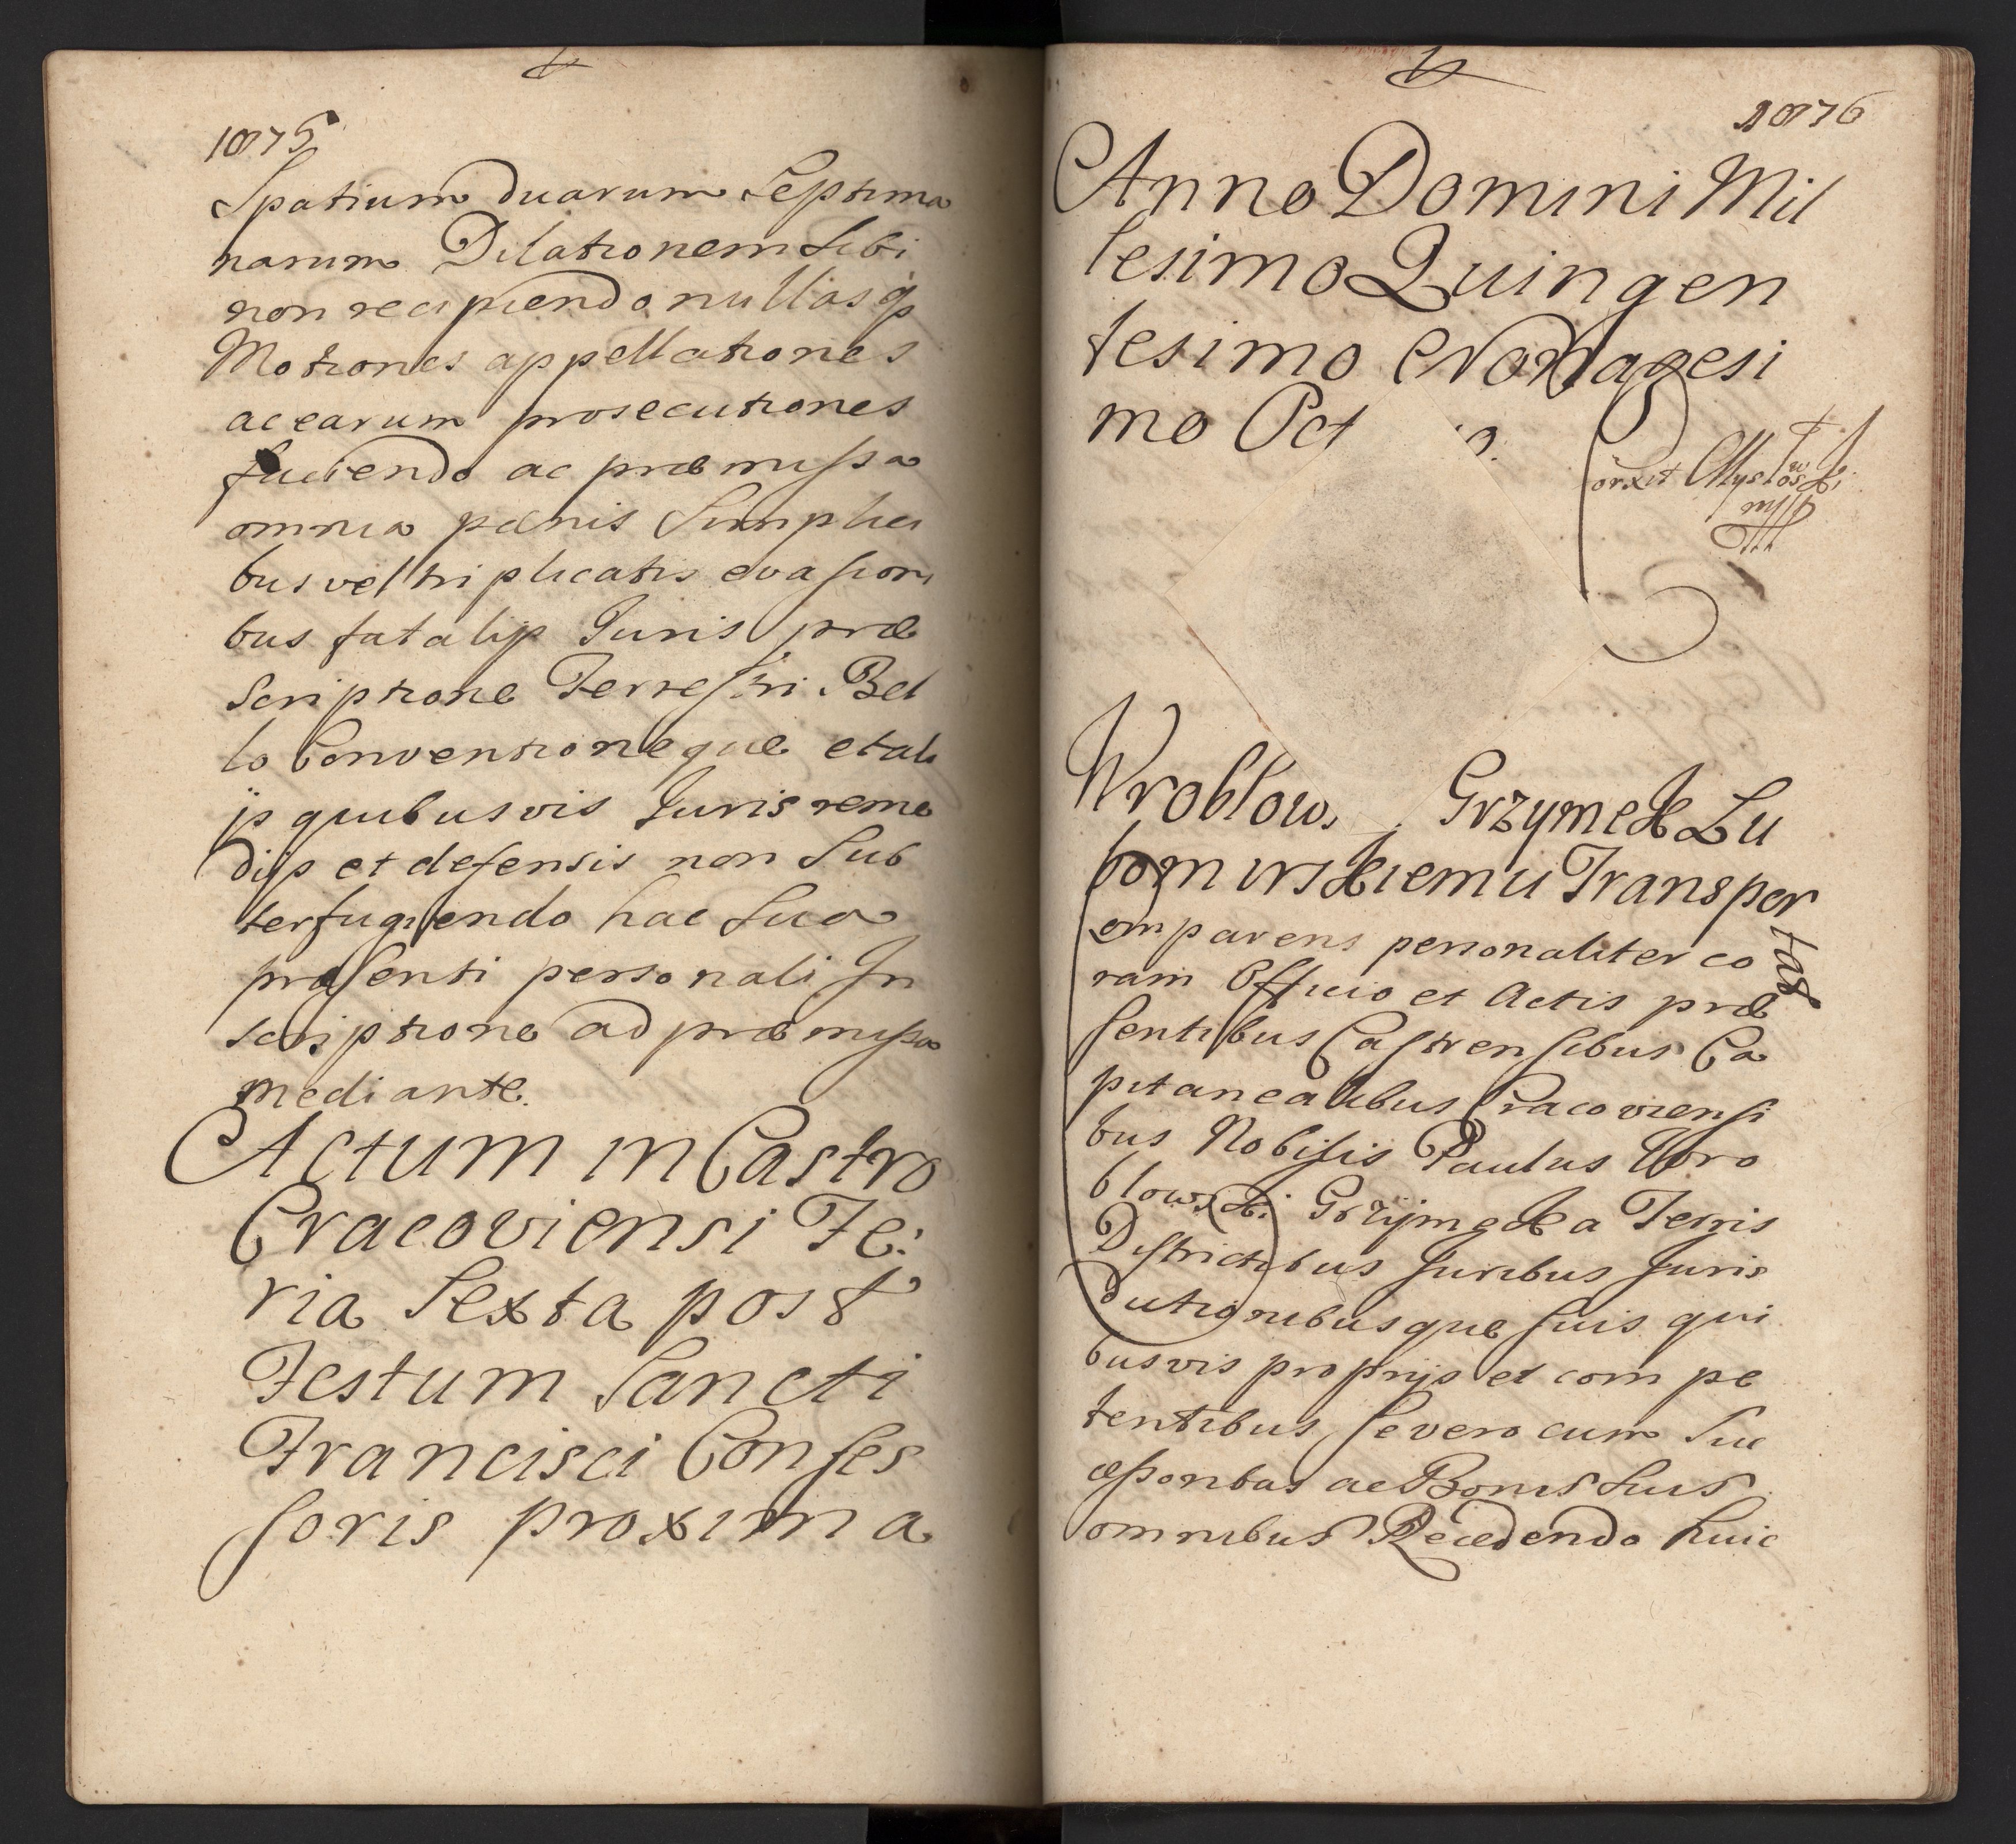 1875
Spatium duarum Septima
narum Dilationem Sibi
non recipiendo nullasq3
Motiones appellationes
ac earum prosecutiones
faciendo ac præmissa
omnia pænis Simplici
bus vel triplicatis evasioni
bus fatalijs Juris præ
scriptione Terrestri Bel
lo Conventioneque et ali
ijs quibusvis Juris reme
dijs et defensis non Sub
terfugiendo hac Sua
præsenti personali In
scriptione ad præmissa
mediante.
Actum in Castro
Cracoviensi Fe:
ria Sexta post
Festum Sancti
Francisci Confes
soris proxima
1876
Anno Domini Mil
lesimo Quingen
tesimo Nonagesi
mo Oct o.
mpp
Wroblows Grzymek Lu
bomirskiemu Transpor
tat
omparens personaliter co
ram Officio et Actis præ
sentibus Castrensibus Ca
pitanealibus Cracoviensi
bus Nobilis Paulus Wro
blowski Grzÿmek a Terris
Districtibus Juribus Juris
dictionibusque suis qui
busvis proprijs et compe
tentibus se vero cum Suc
cessoribus ac Bonis Suis
omnibus Recedendo huic